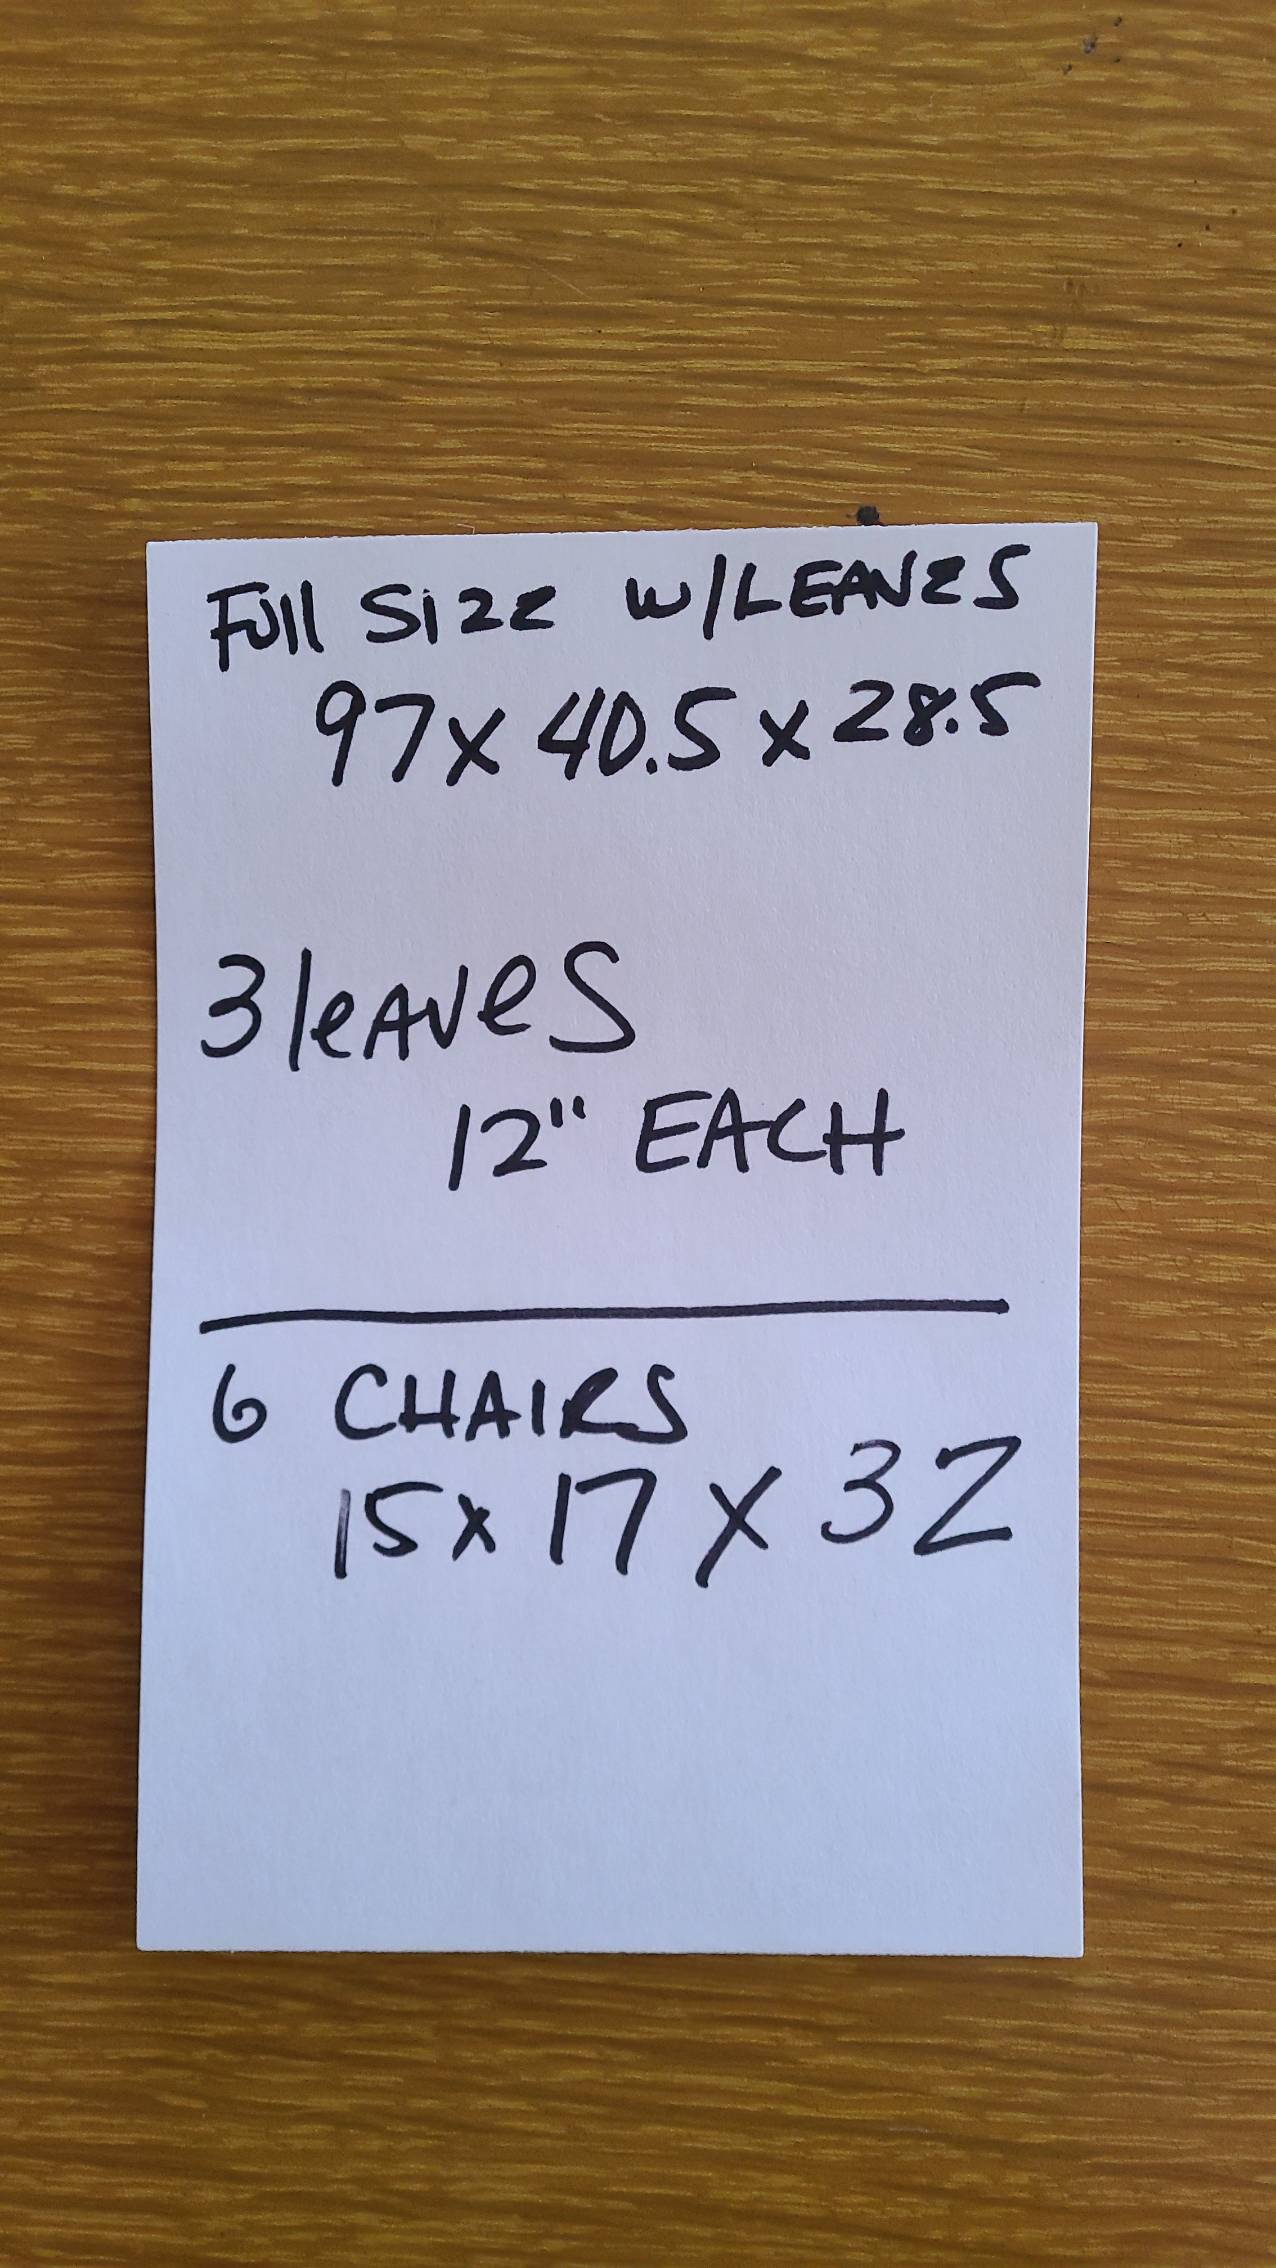 Full Size w/LEAVES
97 x 40.5 x 28.5
3 leAveS
12" EACH
6 CHAIRS
15 x 17 x 32